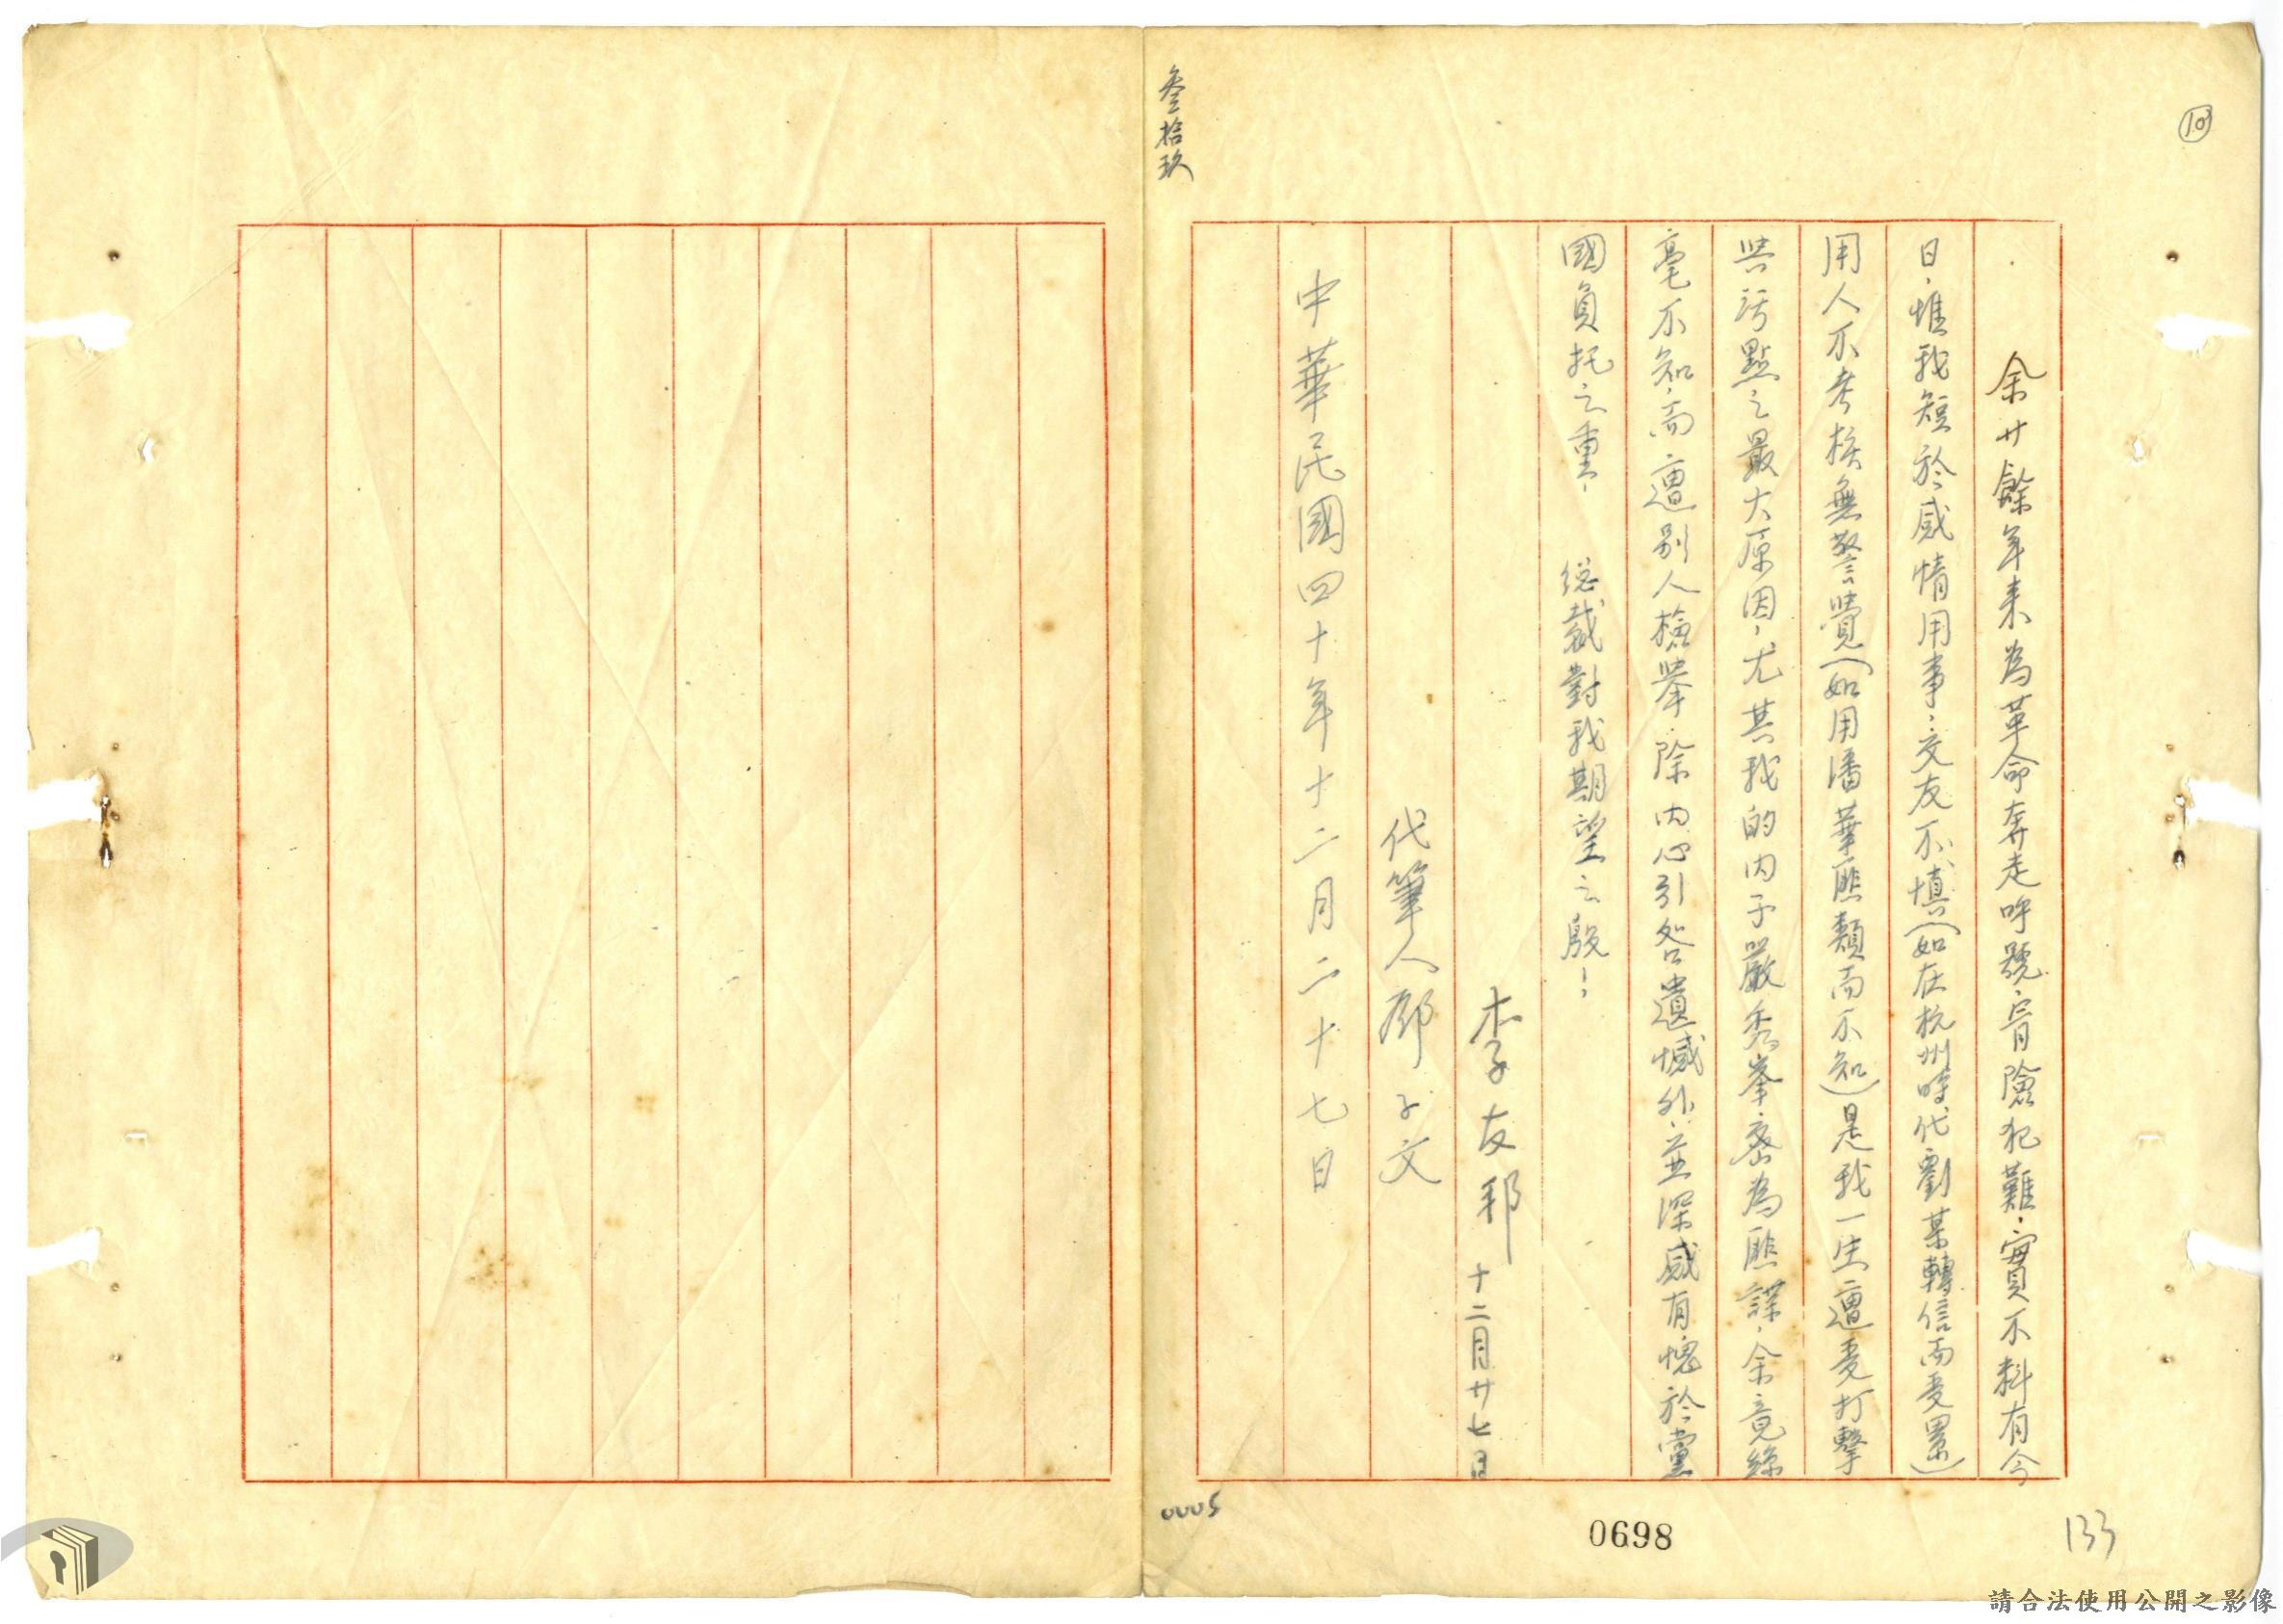 叁拾玖
10
余廿餘年來為革命奔走呼號，冒險犯難，實不料有今
日，惟我短於感情用事，交友不慎（如在杭州時代劉某轉信而受累）
用人不考核無警覺（如用潘華匪類而不知）是我一生遭受打擊
與污點之最大原因，尤其我的內子嚴秀峯，盡為匪諜，余竟絲
毫不知，而遭別人檢舉，除內心引咎遺憾外，並深感有愧於黨
國負托之重，總裁對我期望之殷！
李友邦 十二月廿七日
代筆人 子文
中華民國四十年十二月二十七日
0005
0698
133
請合法使用公開之影像